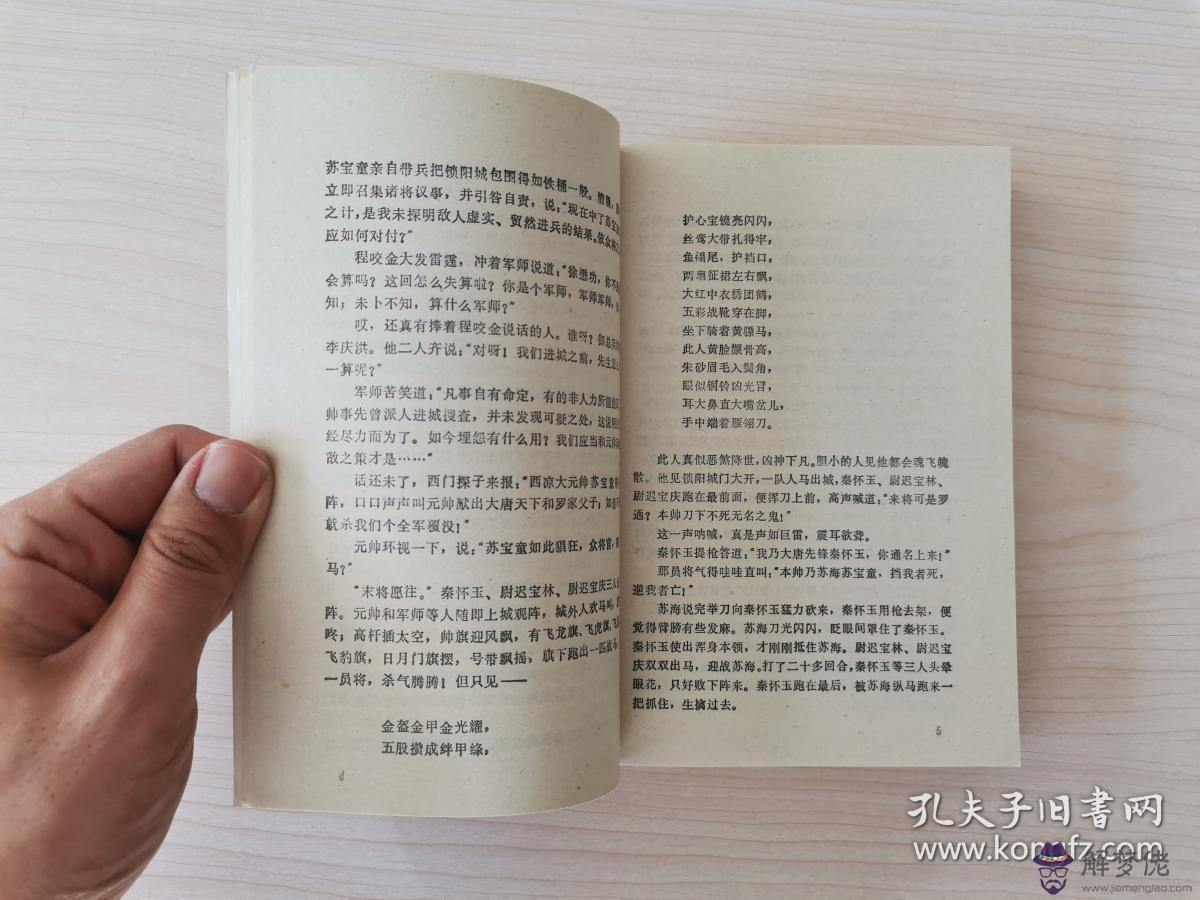 苏宝童亲自带兵把锁阳城包围得如铁桶一般。
立即召集诸将议事，并引咎自责，说：“现在中了苏宝
之计，是我未探明敌人虚实、贸然进兵的结果。依众将
应如何对付？”
程咬金大发雷霆，冲着军师说道：“徐懋功，你不
会算吗？这回怎么失算啦？你是个军师，军师军师，
知；未卜不知，算什么军师？”
哎，还真有捧着程咬金说话的人。谁呀？御总兵
李庆洪。他二人齐说：“对呀！我们进城之前，先生怎
一算呢？”
军师苦笑道：“凡事自有命定，有的非人力所能
帅事先曾派人进城搜查，并未发现可疑之处，这说明
经尽力而为了。如今埋怨有什么用？我们应当和元帅
敌之策才是……”
话还未了，西门探子来报：“西凉大元帅苏宝童
阵，口口声声叫元帅献出大唐天下和罗家父子；如若
就杀我们个全军覆没！”
元帅环视一下，说：“苏宝童如此猖狂，众将官，
马？”
“末将愿往。”秦怀玉、尉迟宝林、尉迟宝庆三人
阵。元帅和军师等人随即上城观阵，城外人欢马叫，
咚；高杆插太空，帅旗迎风飘，有飞龙旗、飞虎旗、
飞豹旗，日月门旗摆，号带飘摇，旗下跑出一匹战马，
一员将，杀气腾腾！但只见——
金盔金甲金光耀，
五股攒成绊甲绦，
4
护心宝镜亮闪闪，
丝鸾大带扎得牢，
鱼褟尾，护裆口，
两扇征裙左右飘，
大红中衣绣团鹤，
五彩战靴穿在脚，
坐下骑着黄骠马，
此人黄脸颧骨高，
朱砂眉毛入鬓角，
眼似铜铃凶光冒，
耳大鼻直大嘴岔儿，
手中端着雁翎刀。
此人真似恶煞降世，凶神下凡。胆小的人见他都会魂飞魄
散。他见锁阳城门大开，一队人马出城，秦怀玉、尉迟宝林、
尉迟宝庆跑在最前面，便挥刀上前，高声喊道：“来将可是罗
通？本帅刀下不死无名之鬼！”
这一声呐喊，真是声如巨雷，震耳欲聋。
秦怀玉提枪答道：“我乃大唐先锋秦怀玉，你通名上来！”
那员将气得哇哇直叫：“本帅乃苏海苏宝童，挡我者死，
逆我者亡！”
苏海说完举刀向秦怀玉猛力砍来，秦怀玉用枪去架，便
觉得臂膀有些发麻。苏海刀光闪闪，眨眼间罩住了秦怀玉。
秦怀玉使出浑身本领，才刚刚抵住苏海。尉迟宝林、尉迟宝
庆双双出马，迎战苏海。打了二十多回合，秦怀玉等三人头晕
眼花，只好败下阵来。秦怀玉跑在最后，被苏海纵马跑来一
把抓住，生擒过去。
5
孔夫子旧书网
www.kongfz.com
解梦佬
www.jiemenglao.com